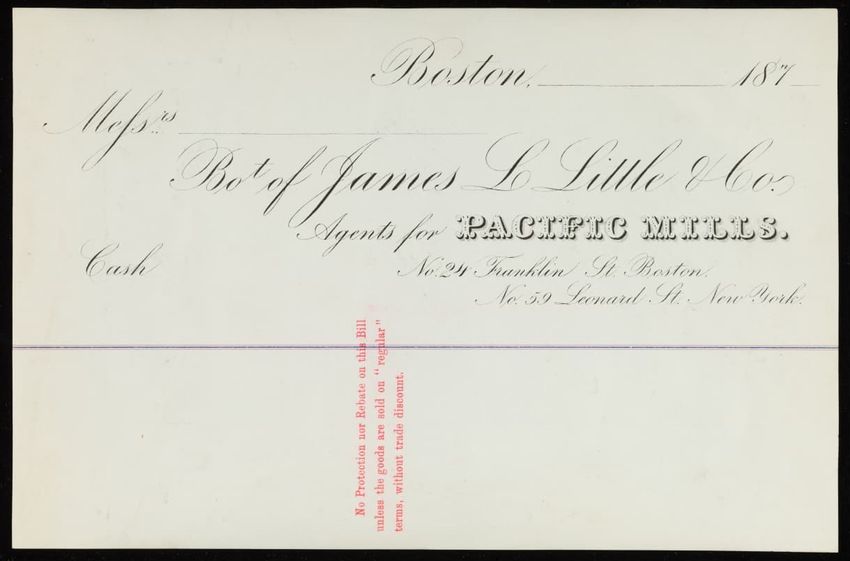 Boston, 187
Messrs
Bot of James L Little & Co.
Agents for PACIFIC MILLS.
Cash
No. 24 Franklin St. Boston.
No. 59 Leonard St. New York.
No Protection nor Rebate on this Bill
unless the goods are sold on "regular"
terms, without trade discount.